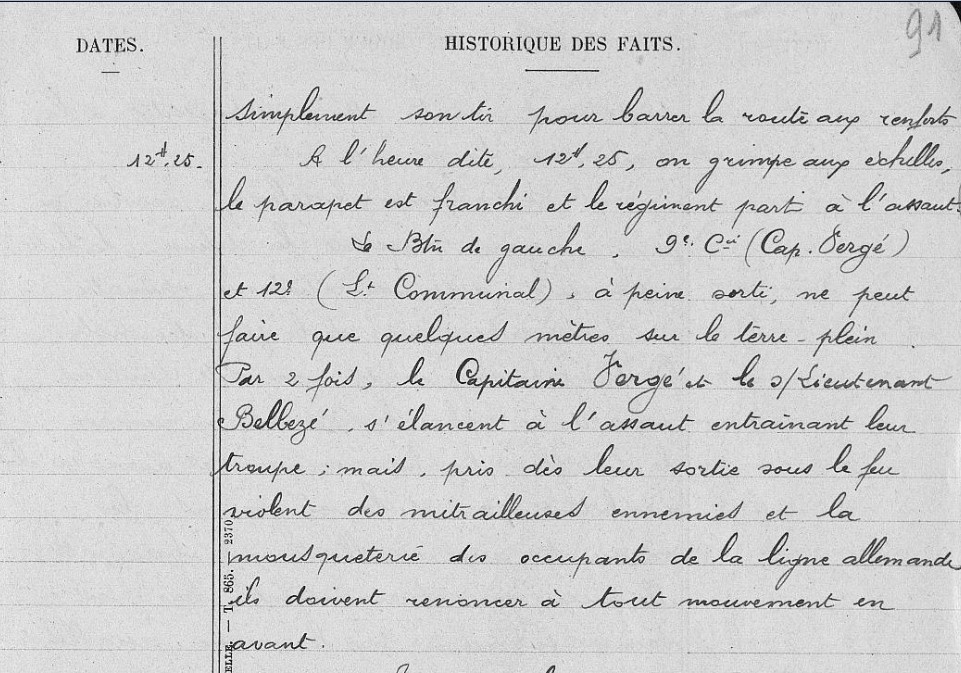 91
DATES.
HISTORIQUE DES FAITS.
simplement son tir pour barrer la route aux renforts
12H,25.
A l'heure dite, 12H,25, on grimpe aux échelles,
le parapet est franchi et le régiment part à l'assaut.
Le Btn de gauche, 9e Cie (Cap. Vergé)
et 12e (Lt Communal), à peine sorti, ne peut
faire que quelques mètres sur le terre-plein.
Par 2 fois, le Capitaine Vergé et le s/Lieutenant
Belbezé, s'élancent à l'assaut entraînant leur
troupe; mais, pris dès leur sortie sous le feu
violent des mitrailleuses ennemies et la
mousqueterie des occupants de la ligne allemande
ils doivent renoncer à tout mouvement en
avant.
ELLE. — T. 865. 2370